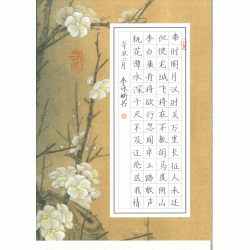 秦时明月汉时关万里长征人未还
但使龙城飞将在不教胡马度阴山
李白乘舟将欲行忽闻岸上踏歌声
桃花潭水深千尺不及汪伦送我情
辛丑 月 李 书